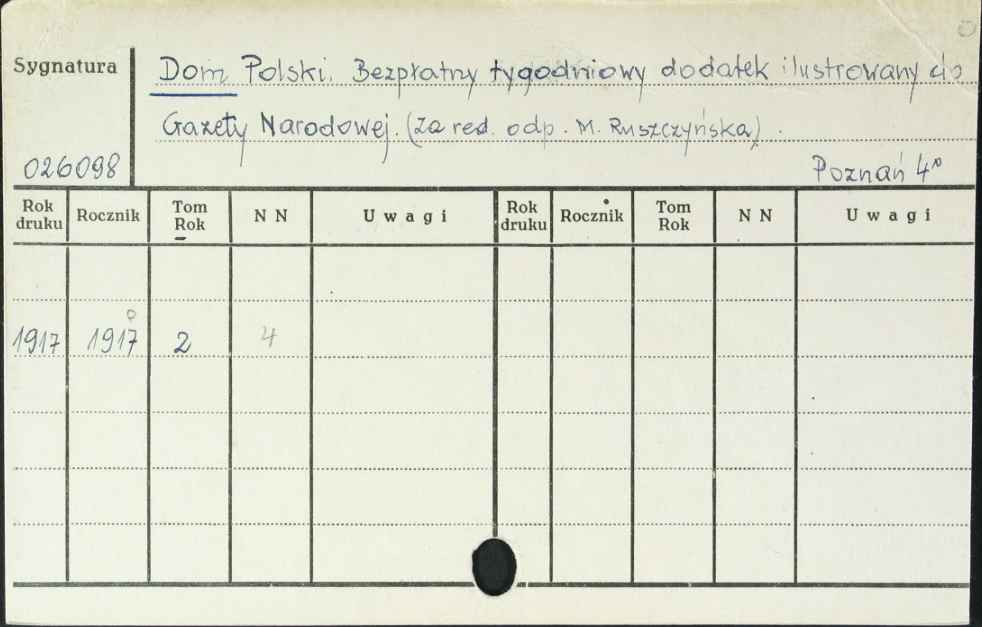 Sygnatura
Dom Polski. Bezpłatny tygodniowy dodatek ilustrowany do
Gazety Narodowej. (Za red. odp. M. Ruszczyńska).
026098
Poznań 4°
Rok druku Rocznik Tom Rok N N Uwagi Rok druku Rocznik Tom Rok N N Uwagi
1917 1917 2 4